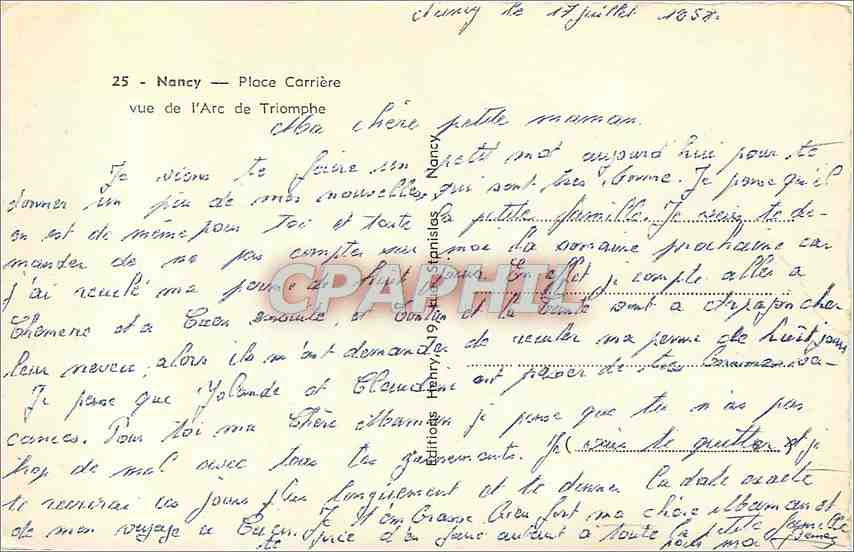 Nancy le 17 juillet 1958.
25 - Nancy — Place Carrière
vue de l'Arc de Triomphe
Ma chère petite maman.
Je viens te faire un petit mot aujourd'hui pour te
donner un peu de mes nouvelles, qui sont très bonne. Je pense qu'il
en est de même pour toi et toute la petite famille. Je viens te de-
mander de ne pas compter sur moi la semaine prochaine car
j'ai reculé ma perme de huit jours. En effet je compte aller a
et a Caen ensuite, et Tonton et la Tante sont a Arpajon cher
leur neveu, alors ils m'ont demander de reculer ma perme de huit jours
Je pense que Yolande et Claudine ont passer de très bonnes va-
cances. Pour toi ma Chère Maman je pense que tu n'as pas
trop de mal avec tous tes Je vais te quitter et je
te recrirai ces jours plus longuement et te donner la date exacte
de mon voyage a Caen. Je t'embrasse bien fort ma chère Maman et
te prie d'en faire autant a toute la petite famille
pour moi
Editions Henry, 19, rue Stanislas, Nancy
CPAPHIL